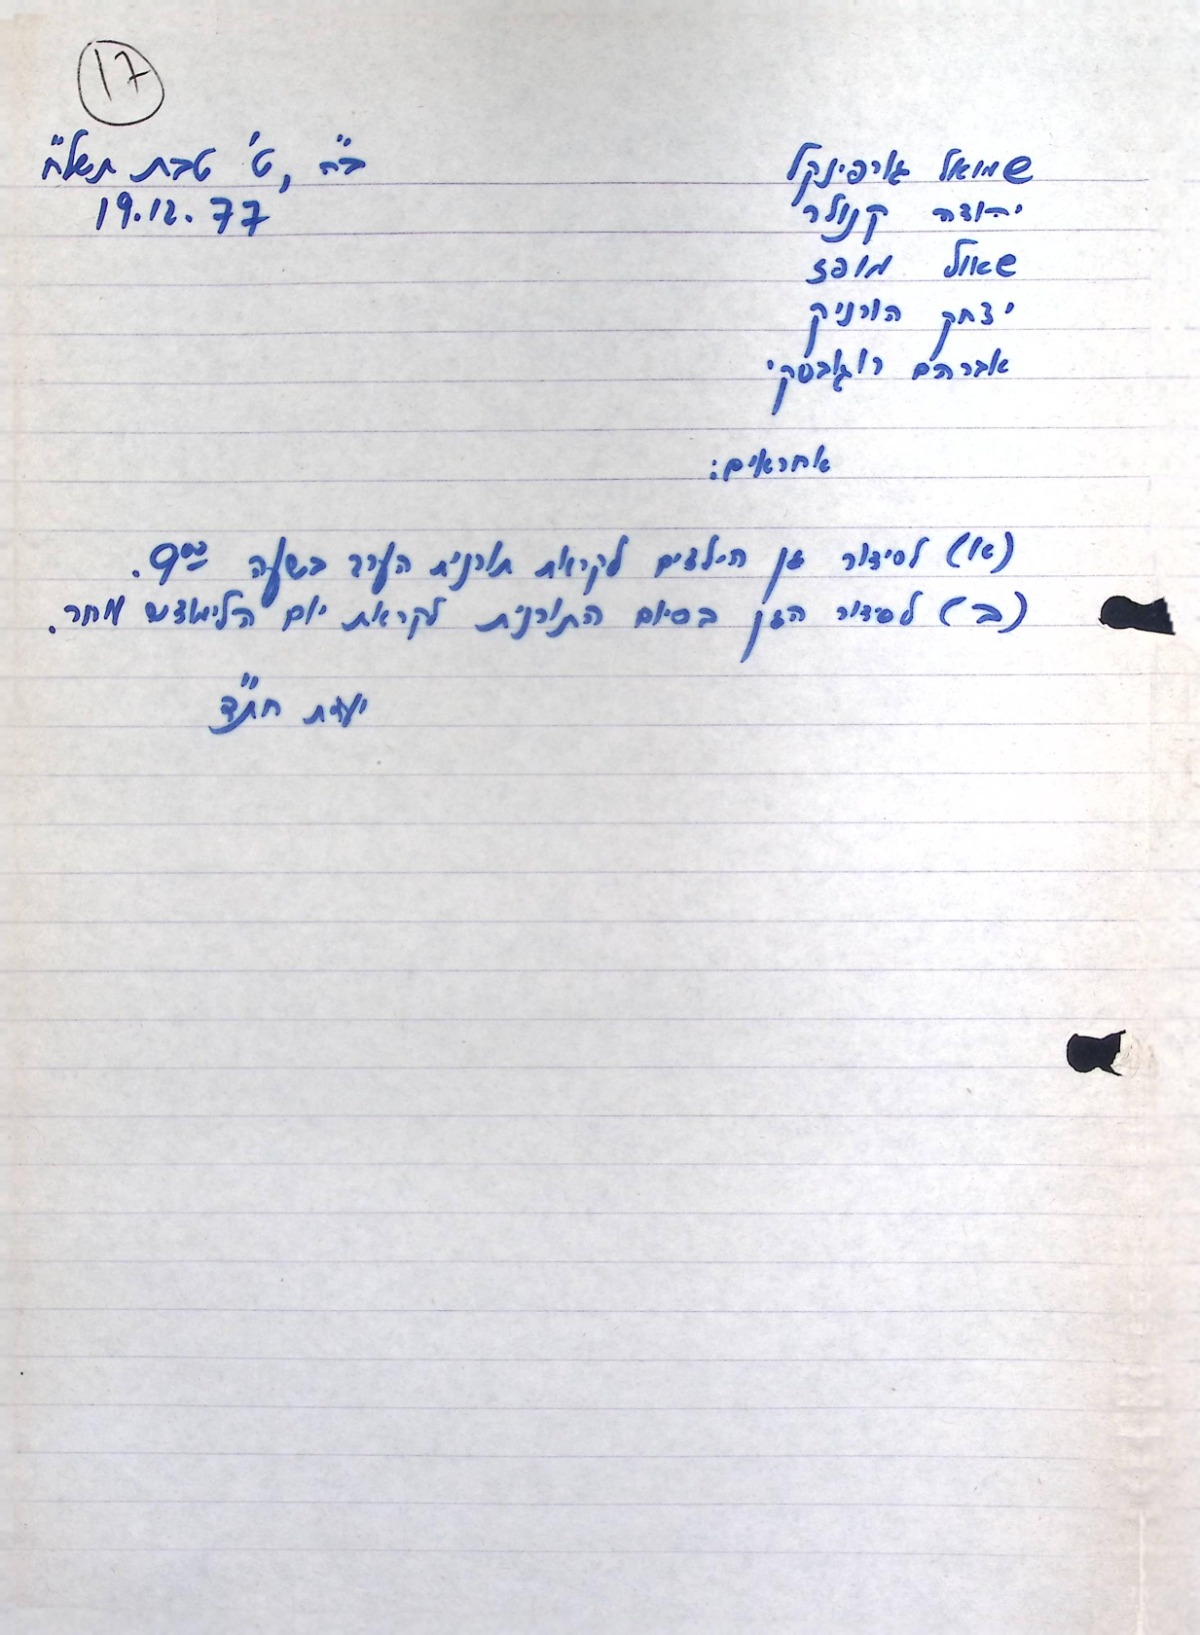 17
ב"ה, ט' טבת תשל"ח
19.12.77
שמואל גורפינקל
יהודה קנולר
שאול מופז
יצחק הורניק
אברהם רוגובסקי
אחראים:
(א) לסידור גן הילדים לקראת תורנית הערב בשעה 9⁰⁰.
(ב) לסידור הגן בסיום התורנית לקראת יום הלימודים מחר.
ועדת חת"ד